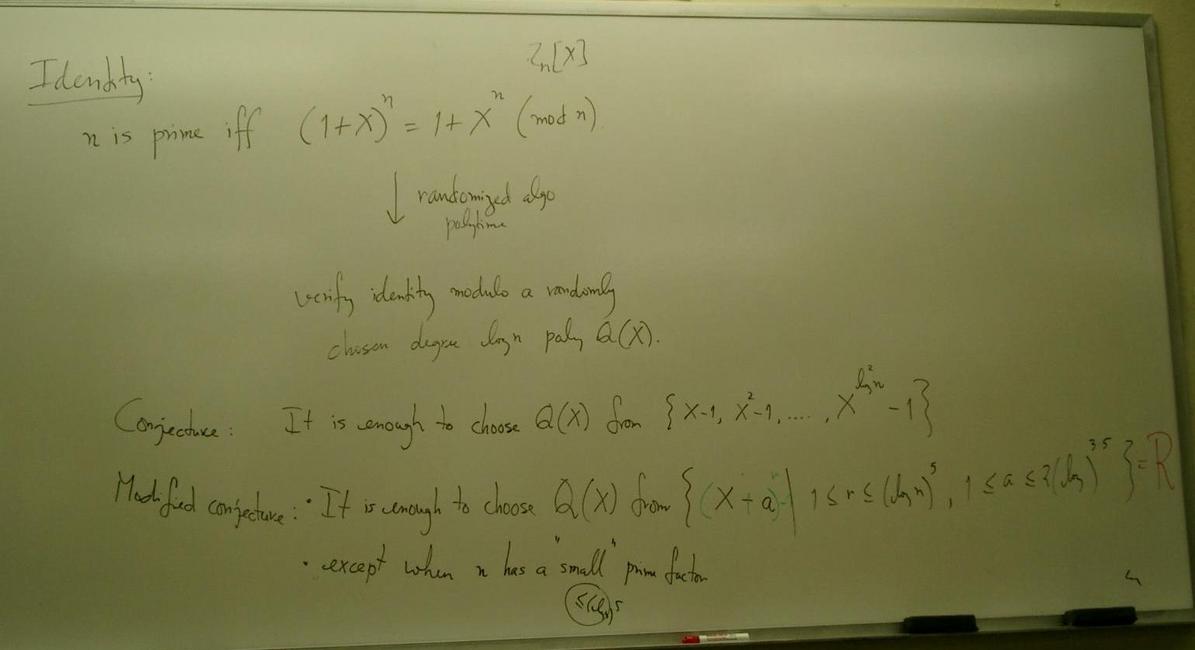 Z_n[X]
Identity:
n is prime iff (1+X)^n = 1+X^n (mod n).
↓ randomized algo
polytime
verify identity modulo a randomly
chosen degree log n poly Q(X).
Conjecture: It is enough to choose Q(X) from {X-1, X^2-1, ...., X^{log^2 n} -1}
Modified conjecture: • It is enough to choose Q(X) from {(X+a)^r-1 | 1 ≤ r ≤ (log n)^5, 1 ≤ a ≤ 2(log)^{3.5}} = R
• except when n has a "small" prime factor
≤(log n)^5